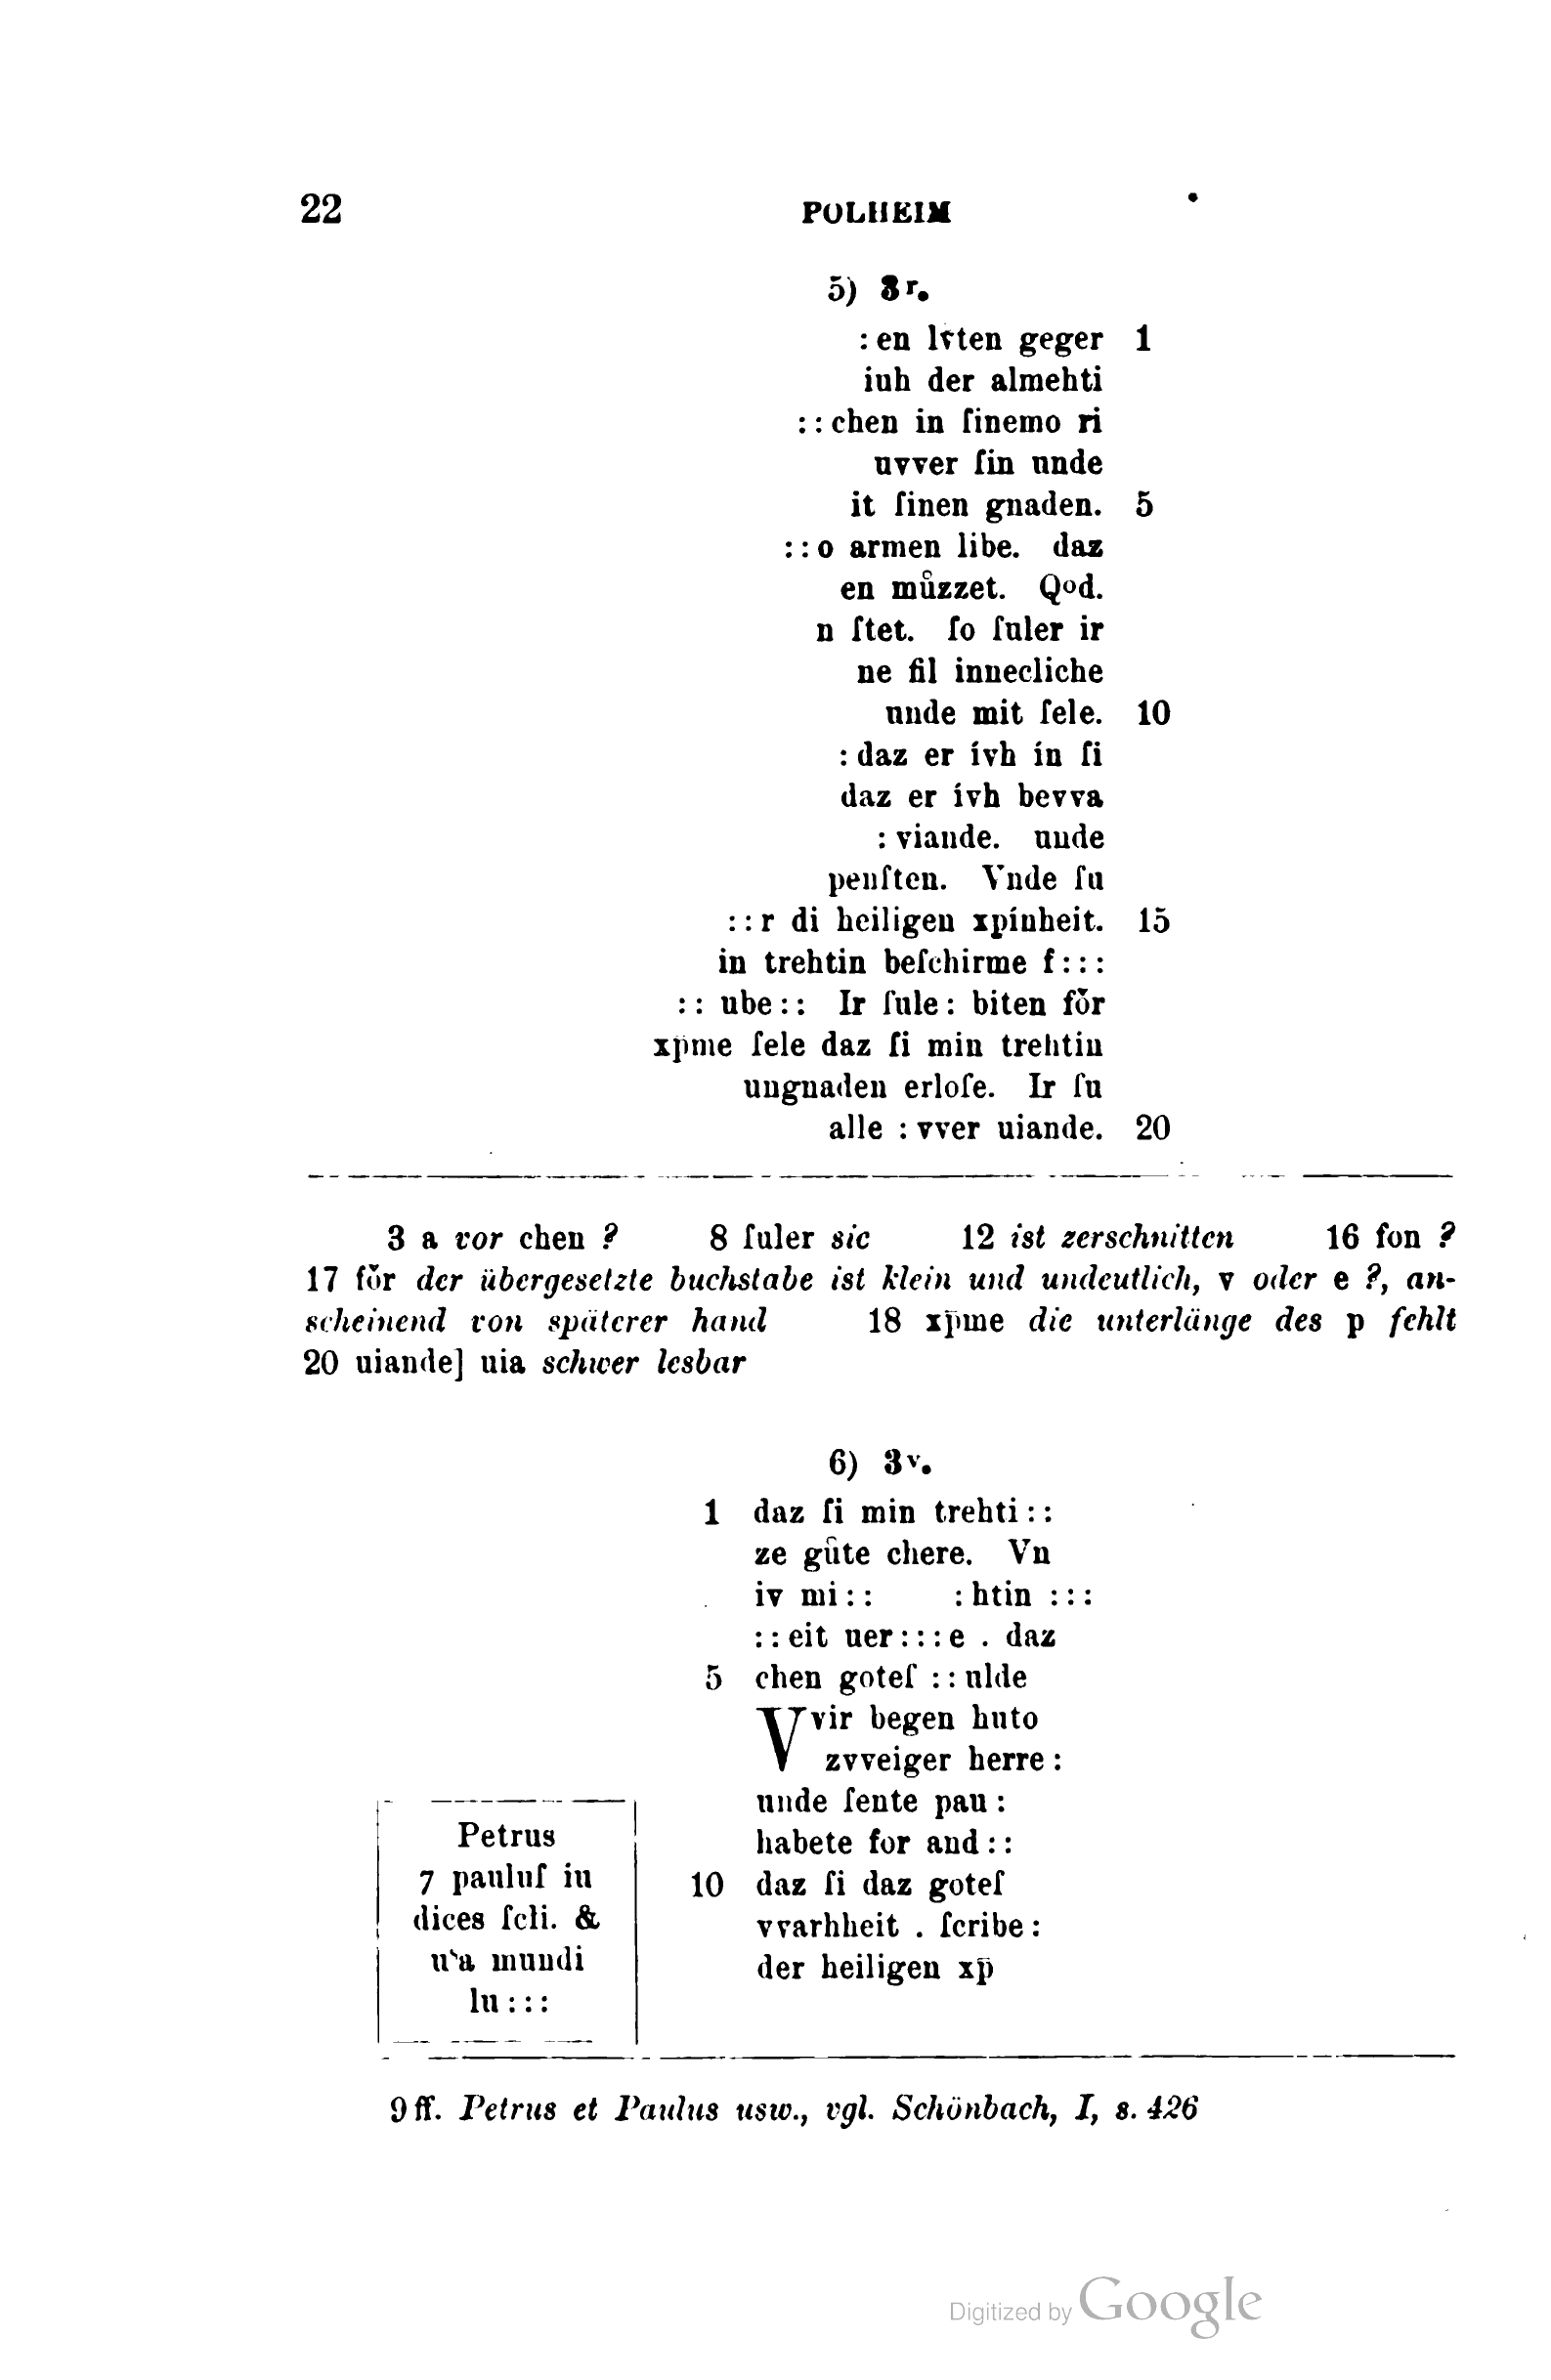 22 POLHEIM
5) 3r.
:en lıͮten geger 1
iuh der almehti
::chen in ſinemo ri
uvver ſin unde
it ſinen gnaden. 5
::o armen libe. daz
en můzzet. Qod.
n ſtet. ſo ſuler ir
ne fil innecliche
unde mit ſele. 10
:daz er ívh ín ſi
daz er ívh bevva
:viande. unde
penſten. Vnde ſu
::r di heiligen xpínheit. 15
in trehtin beſchirme f:::
:: ube:: Ir ſule: biten foͮr
xp̄me ſele daz ſi min trehtin
ungnaden erloſe. Ir ſu
alle :vver uiande. 20
3 a vor chen ? 8 ſuler sic 12 ist zerschnitten 16 fon ?
17 foͮr der übergesetzte buchstabe ist klein und undeutlich, v oder e ?, an-
scheinend von späterer hand 18 xp̄me die unterlänge des p fehlt
20 uiande] uia schwer lesbar
6) 3v.
1 daz ſi min trehti::
ze gûte chere. Vn
iv mi:: :htin :::
::eit uer:::e . daz
5 chen goteſ ::ulde
Vvir begen huto
zvveiger herre:
unde ſente pau:
habete for and::
10 daz ſi daz goteſ
vvarhheit . ſcribe:
der heiligen xp̄
Petrus
7 pauluſ iu
dices ſcli. &
mundi
lu:::
9 ff. Petrus et Paulus usw., vgl. Schönbach, I, s. 426
Digitized by Google